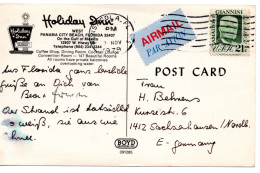 Holiday Inn®
WEST
PANAMA CITY BEACH, FLORIDA 32407
On the Gulf of Mexico
12907 W. Hiway 98
Telephone (904) 234-
Coffee Shop, Dining Room, Cocktail Lounge,
Convention Room - 147 Beautiful Rooms
All rooms have private balconies
overlooking water
AIRMAIL
PAR AVION
GIANNINI
USA 21c
POST CARD
Aus Florida ganz herzliche
Grüße an Dich von
Der Strand ist tatsächlich
so weiß, sie aus wie
Schnee.
Frau
H. Behrens
6
1412 Sachsenhausen/Nordb.
E-Germany
BOYD